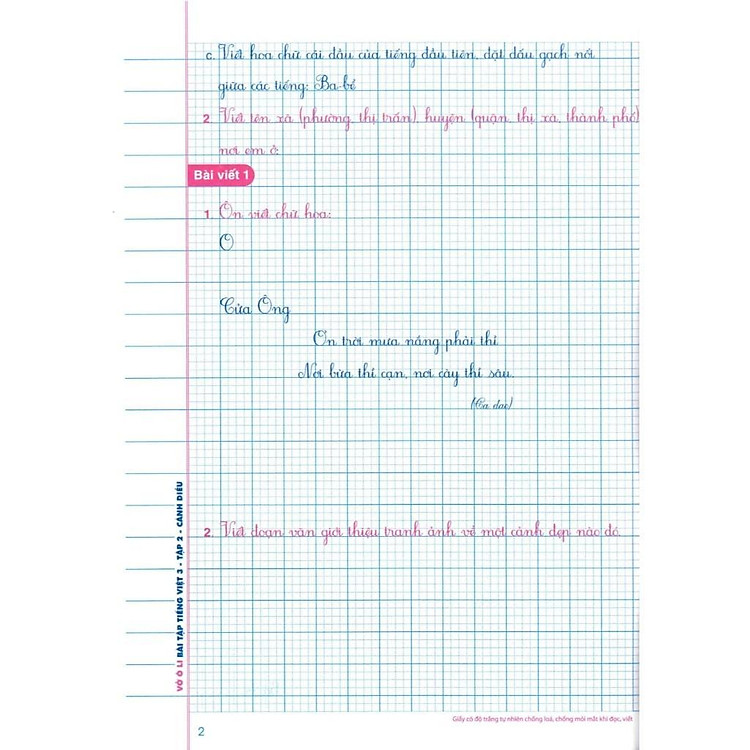 c. Viết hoa chữ cái đầu của tiếng đầu tiên, đặt dấu gạch nối
giữa các tiếng: Ba-bề
2. Viết tên xã (phường, thị trấn), huyện (quận, thị xã, thành phố)
nơi em ở.
Bài viết 1
1. Ôn viết chữ hoa:
O
Cửa Ông
Ơn trời mưa nắng phải thì
Nơi bừa thì cạn, nơi cày thì sâu.
(Ca dao)
2. Viết đoạn văn giới thiệu tranh ảnh về một cảnh đẹp nào đó.
VỞ Ô LI BÀI TẬP TIẾNG VIỆT 3 - TẬP 2 - CÁNH DIỀU
Giấy có độ trắng tự nhiên chống loá, chống mỏi mắt khi đọc, viết
2